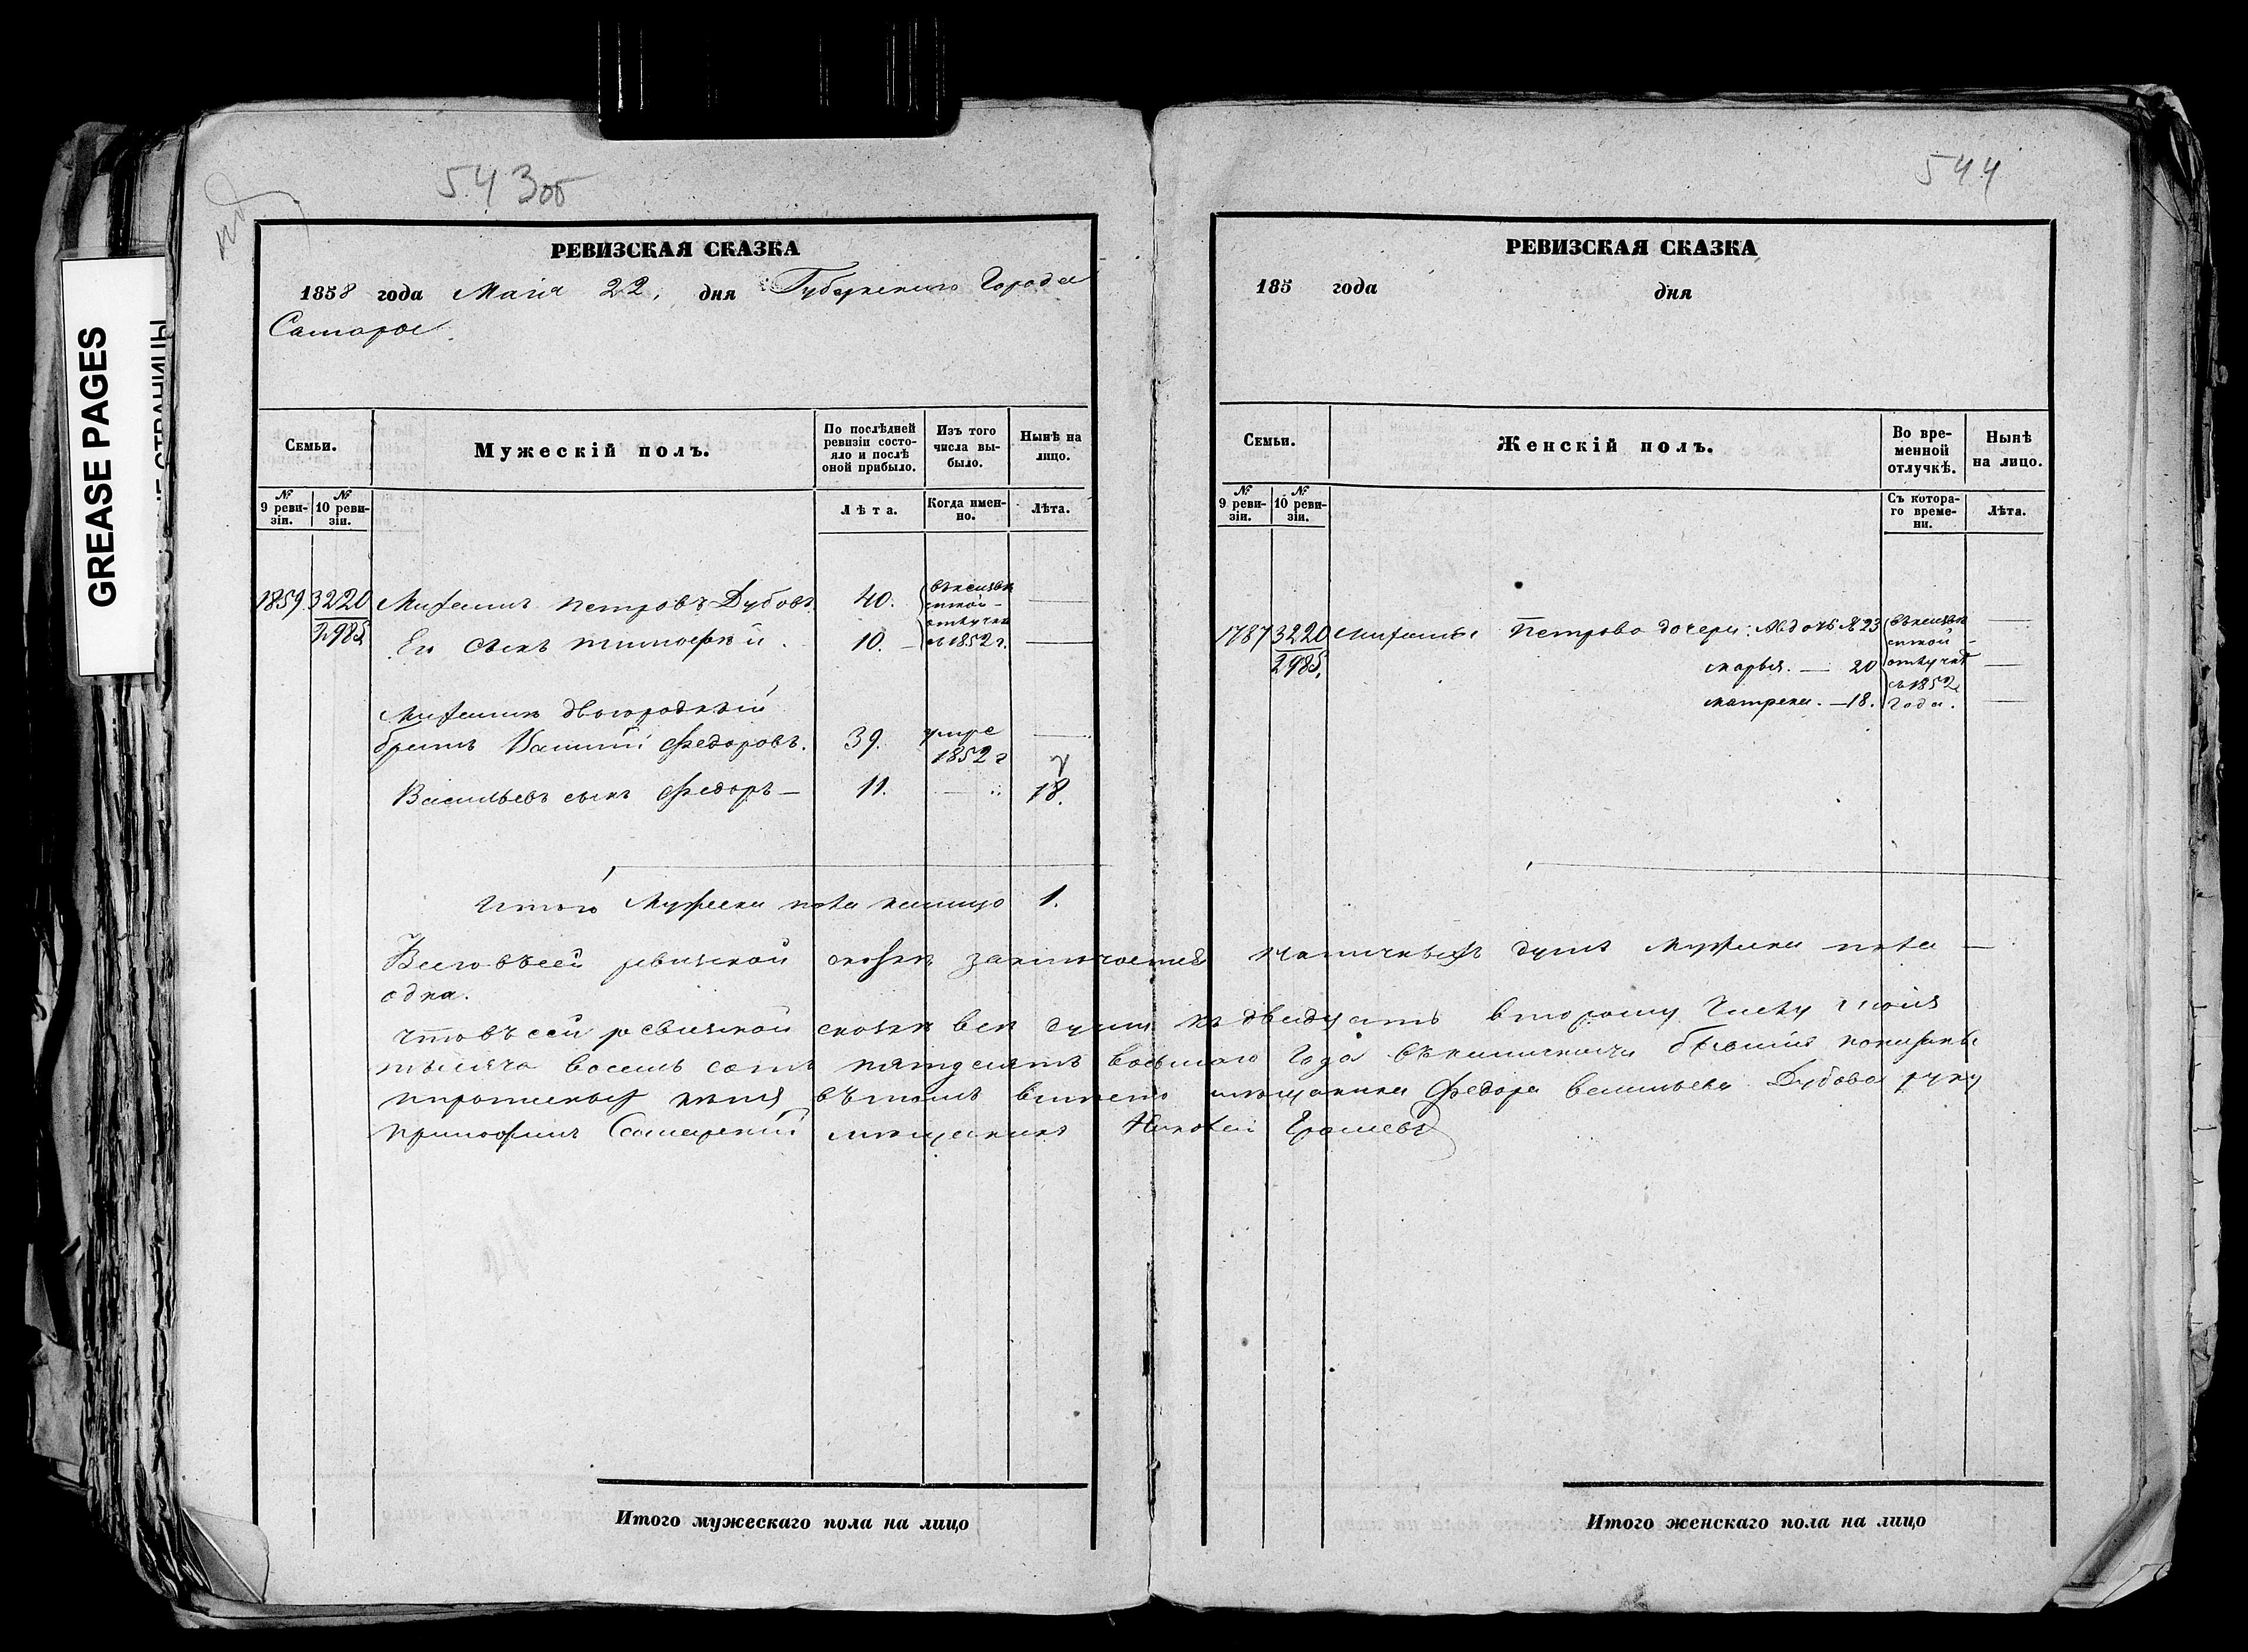 543об
РЕВИЗСКАЯ СКАЗКА
1858 года Маія 22, дня Губернскаго Города
Самары.
Семьи.
Мужескій полъ.
По послѣдней ревизіи состояло и послѣ оной прибыло.
Изъ того числа выбыло.
Нынѣ на лицо.
№ 9 ревизіи.
№ 10 ревизіи.
Лѣта.
Когда именно.
Лѣта.
1859 3220 Михаилъ Петровъ Дубовъ 40. —
2985 Его сынъ Тимофѣй. 10. —
въ неизвѣстной отлучкѣ съ 1852 г.
Михаила двоюродный
братъ Василій Федоровъ. 39. умре 1852 г —
Васильевъ сынъ Федоръ — 11. — 18.
Итого Мужеска пола налицо 1.
544
РЕВИЗСКАЯ СКАЗКА
185 года дня
Семьи.
Женскій полъ.
Во временной отлучкѣ.
Нынѣ на лицо.
№ 9 ревизіи.
№ 10 ревизіи.
Съ котораго времени.
Лѣта.
1787 3220 Михаила Петрова дочери: 23 —
2985. Марья. — 20 —
Матрена. — 18. —
въ неизвѣстной отлучкѣ съ 1852 года.
Всего въ сей ревизской сказкѣ заключается наличныхъ душъ Мужеска пола —
одна.
Что въ сей ревизской сказкѣ все души къ двадцать второму числу
тысяча восемь сотъ пятдесятъ восьмаго года въ наличности бывшія показаны
и прописныхъ нѣтъ въ томъ вмѣсто мѣщанина Федора Васильева Дубова руку
приложилъ Самарскій мѣщанинъ Николай
Итого мужескаго пола на лицо
Итого женскаго пола на лицо
GREASE PAGES